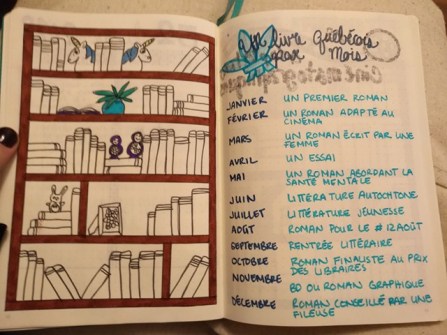 Un livre Québécois
par Mois
JANVIER UN PREMIER ROMAN
FÉVRIER UN ROMAN ADAPTÉ AU
CINÉMA
MARS UN ROMAN ÉCRIT PAR UNE
FEMME
AVRIL UN ESSAI
MAI UN ROMAN ABORDANT LA
SANTÉ MENTALE
JUIN LITTÉRATURE AUTOCHTONE
JUILLET LITTÉRATURE JEUNESSE
AOÛT ROMAN POUR LE #12AOÛT
SEPTEMBRE RENTRÉE LITTÉRAIRE
OCTOBRE ROMAN FINALISTE AU PRIX
DES LIBRAIRES
NOVEMBRE BD OU ROMAN GRAPHIQUE
DÉCEMBRE ROMAN CONSEILLÉ PAR UNE
FILEUSE